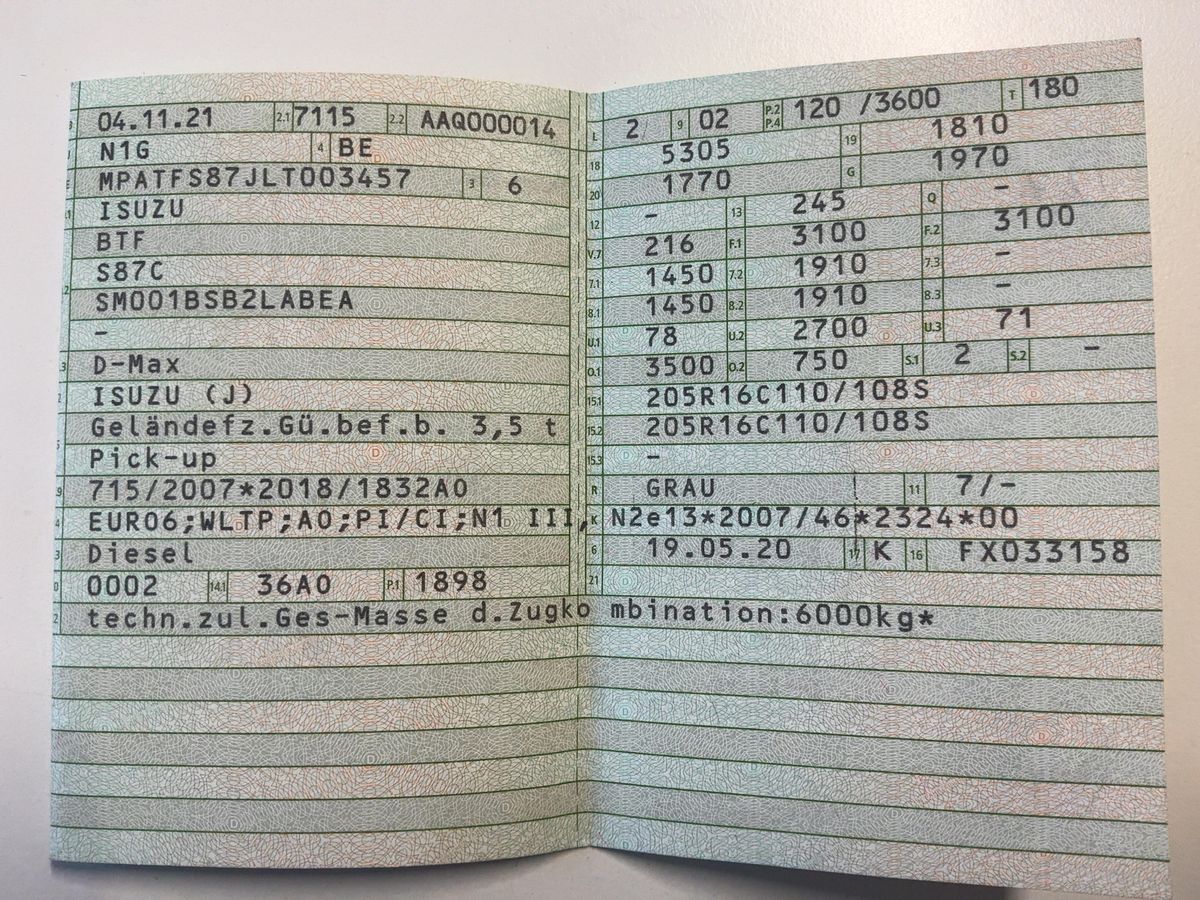 04.11.21 2.1 7115 2.2 AAQ000014
N1G 4 BE
MPATFS87JLT003457 3 6
ISUZU
BTF
S87C
SM001BSB2LABEA
–
D-Max
ISUZU (J)
Geländefz.Gü.bef.b. 3,5 t
Pick-up
715/2007*2018/1832AO
EURO6;WLTP;AO;PI/CI;N1 III, N2 K e13*2007/46*2324*00
Diesel
0002 14.1 36AO P.1 1898
techn.zul.Ges-Masse d.Zugkombination:6000kg*
L 2 9 02 P.2 P.4 120 /3600 T 180
18 5305 19 1810
20 1770 G 1970
12 – 13 245 Q –
V.7 216 F.1 3100 F.2 3100
7.1 1450 7.2 1910 7.3 –
8.1 1450 8.2 1910 8.3 –
U.1 78 U.2 2700 U.3 71
O.1 3500 O.2 750 S.1 2 S.2 –
15.1 205R16C110/108S
15.2 205R16C110/108S
15.3 –
R GRAU 11 7/–
6 19.05.20 17 K 16 FX033158
21